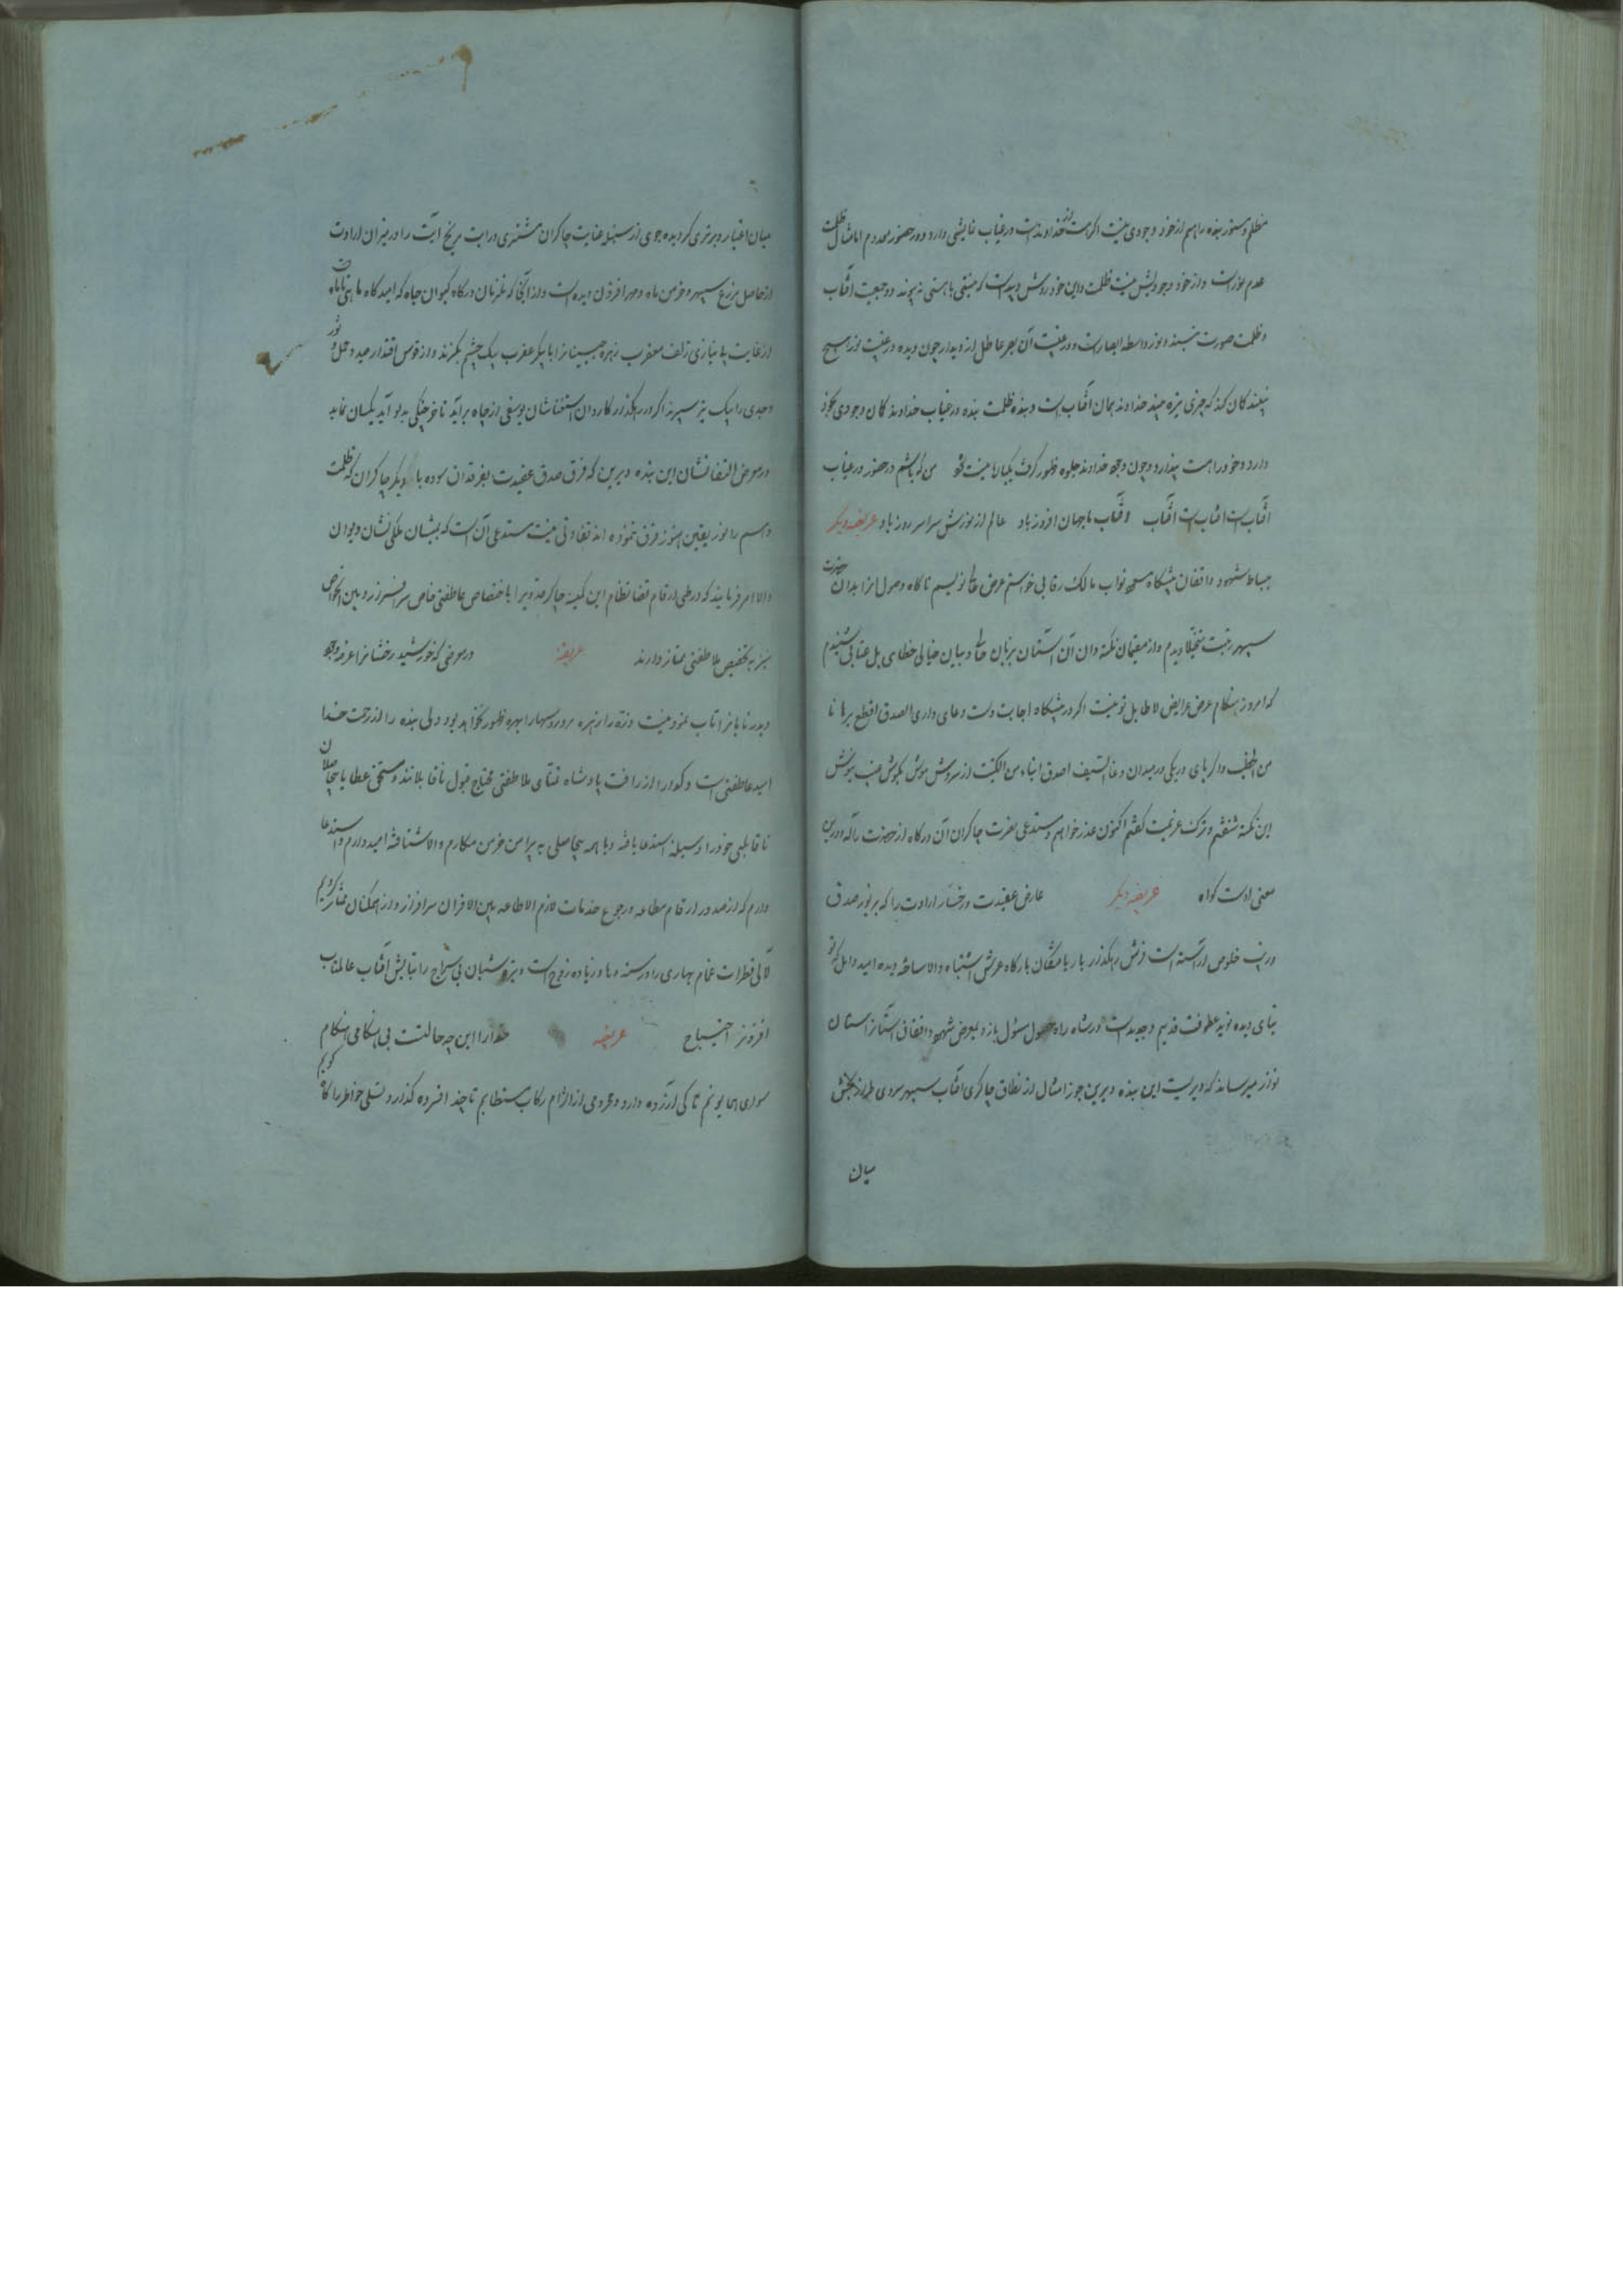 مظلم و مستور بنده را هم از خود وجودی نیست اگر هست از خداوند است در غیاب نمایشی دارد و در حضور معدوم امامثال ظلمت
عدم نور است و از خود وجودیش نیست ظلمت و این خود روشن و پیداست که نیستی با هستی نپیوند و در جمعیت آفتاب
و ظلمت صورت نبندد و نور واسطه ابصار است و در غیبت آن بصر عاطل از دیدار چون دیده در غیبت نور هیچ
نبیند گمان کند که چیزی تیره میبیند خداوند همان آفتاب است و بنده ظلمت بنده در غیاب خداوند گمان وجودی بخود
دارد و خود را هست پندارد و چون وجه خداوند جلوه ظهور گرفت یکباره نیست شود من که باشم در حضور و در غیاب
آفتاب است آفتاب است آفتاب و آفتاب ما جهان افروز باد عالم از نورش سراسر روز باد عریضه دیگر
ببساط شهود واقفان پیشگاه نواب مالک رقابی خواستم عرض حالی نویسم ناگاه وصول را بدان حضرت
سپهر رتبت دیدم و از مقیمان نکته دان آن آستان بزبان حال و بیان خیالی خطابی بل عتابی شنیدم
که امروز هنگام عرض عرایض لاطایل تو نیست اگر در پیشگاه اجابت دست دعای داری الصدق اقطع برهانا
من الخطب و اگر پای در میدان وغا السیف اصدق انباء من الکتب از سروش هوش بگوش نیوش
این نکته شنفتم و ترک عزیمت گفتم اکنون عذر خواهم و مستدعی نصرت چاکران آن درگاه از حضرت اله و در این
معنی اوست گواه عریضه دیگر عارض عقیدت و رخسار ارادت را که بر نور صدق
و زیب خلوص آراسته است فرش رهگذر باریافتگان بارگاه عرش اشتباه والا ساخته دیده امید و امل
بنای دیده نوید عطوفت قدیم و جدید است در شاه راه حصول مسئول باز و بمعرض شهود واقفان آستان
نواز میرساند که دیریست این بنده دیرین جوزا مثال از نطاق چاکری آفتاب سپهر سروری طراز بخش
میان
میان اعتبار و برتری گردیده جوی از سنبله عنایت چاکران مشتری درایت مریخ آیت را در میزان ارادت
از حاصل مزرع سپهر و خرمن ماه و مهر افزون دیده است و از آنجا که ملتزمان درگاه کیوان جاه که امیدگاه ماهی تا ماه
از غایت بی نیازی زلف معقرب زهره جبینان را با پیکر عقرب بیک چشم نگرند و از قوس اقتدار صید و حمل و ثور
و جدی را بیک تیر سپرند اگر در رهگذر کاروان استغناشان یوسفی از چاه برآید تا خرچنگی بدلو آید یکسان نماید
در معرض التفاتشان این بنده دیرین که فرق صدق عقیدت بفرقدان سوده با دیگر چاکران که ظلمت
و اسم را نور یقین هنوز فرق ننموده اند تفاوتی نیست مستدعی آن است که بمنشیان ملکی نشان دیوان
والا امر فرمایند که در طی ارقام قضا نظام این کمینه چاکر قدیم را باختصاص عاطفتی خاص سرافراز و بین الخواص
نیز به تخصیص ملاطفتی ممتاز دارند عریضه در معرضی که خورشید رخشان را عرضه وجه
و بدر تابان را تاب نمود نیست ذره را زهره بروز و سها را بهره ظهور نخواهد بود ولی بنده را از رحمت خدا
امید عاطفتی است و گدا را از رأفت پادشاه تمنای ملاطفتی محتاج قبول ناقابلانند و مستحق عطا بیحاصلان
ناقابلی خود را وسیله استدعا یافته و با همه بیحاصلی به پیرامن خرمن مکارم والا شتافته امیدوارم و استدعا
دارم که از صدور ارقام مطاعه و رجوع خدمات لازم الاطاعه بین الاقران سرافراز و از همگنان ممتاز گردیم
لآلی قطرات غمام بهاری را و تیره شبان بی سراج را بتابش آفتاب عالمتاب
افزونتر احتیاج عریضه خدا را این چه حالتست بی هنگامی هنگام
سواری همایونم تا کی آزرده دارد و محرومی از التزام رکاب مستطابم تا چند افسرده گذارد تسلی خاطر را گاه گویم